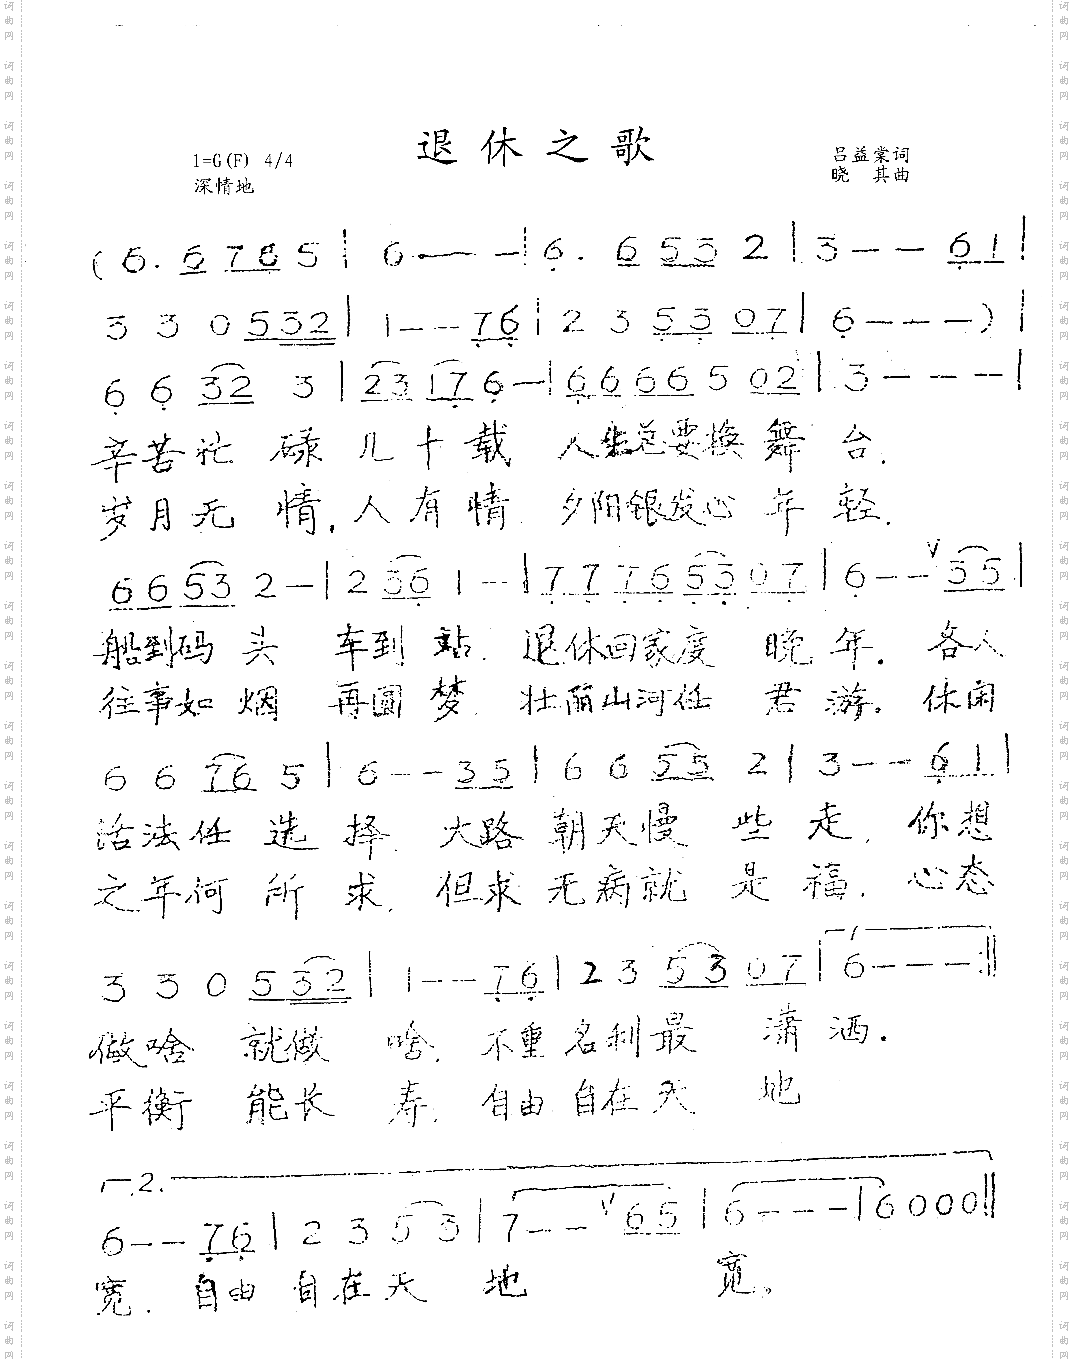 退休之歌
1=G(F) 4/4
吕益棠词
深情地
晓 其曲
(6. 6 7 6 5 | 6 - - - | 6. 6 5 3 2 | 3 - - 6 1 |
3 3 0 5 3 2 | 1 - - 7 6 | 2 3 5 3 0 7 | 6 - - - ) |
6 6 3 2 3 | 2 3 1 7 6 - | 6 6 6 6 5 0 2 | 3 - - - |
辛苦忙 碌 几十载 人生总要换 舞 台.
岁月无 情, 人有情 夕阳银发心 年 轻.
6 6 5 3 2 - | 2 3 6 1 - - | 7 7 7 6 5 3 0 7 | 6 - - V 3 5 |
船到码 头 车到 站. 退休回家度 晚 年. 各人
往事如 烟 再圆 梦. 壮丽山河任 君 游. 休闲
6 6 7 6 5 | 6 - - 3 5 | 6 6 5 5 2 | 3 - - 6 1 |
活法任 选 择. 大路 朝天慢 些 走, 你想
之年何 所 求. 但求 无病就 是 福. 心态
3 3 0 5 3 2 | 1 - - 7 6 | 2 3 5 3 0 7 | 1 6 - - - :||
做啥 就做 啥. 不重 名利最 潇 洒.
平衡 能长 寿. 自由 自在天 地
2.
6 - - 7 6 | 2 3 5 3 | 7 - - V 6 5 | 6 - - - | 6 0 0 0 ||
宽. 自由 自在天 地 宽。
词曲网